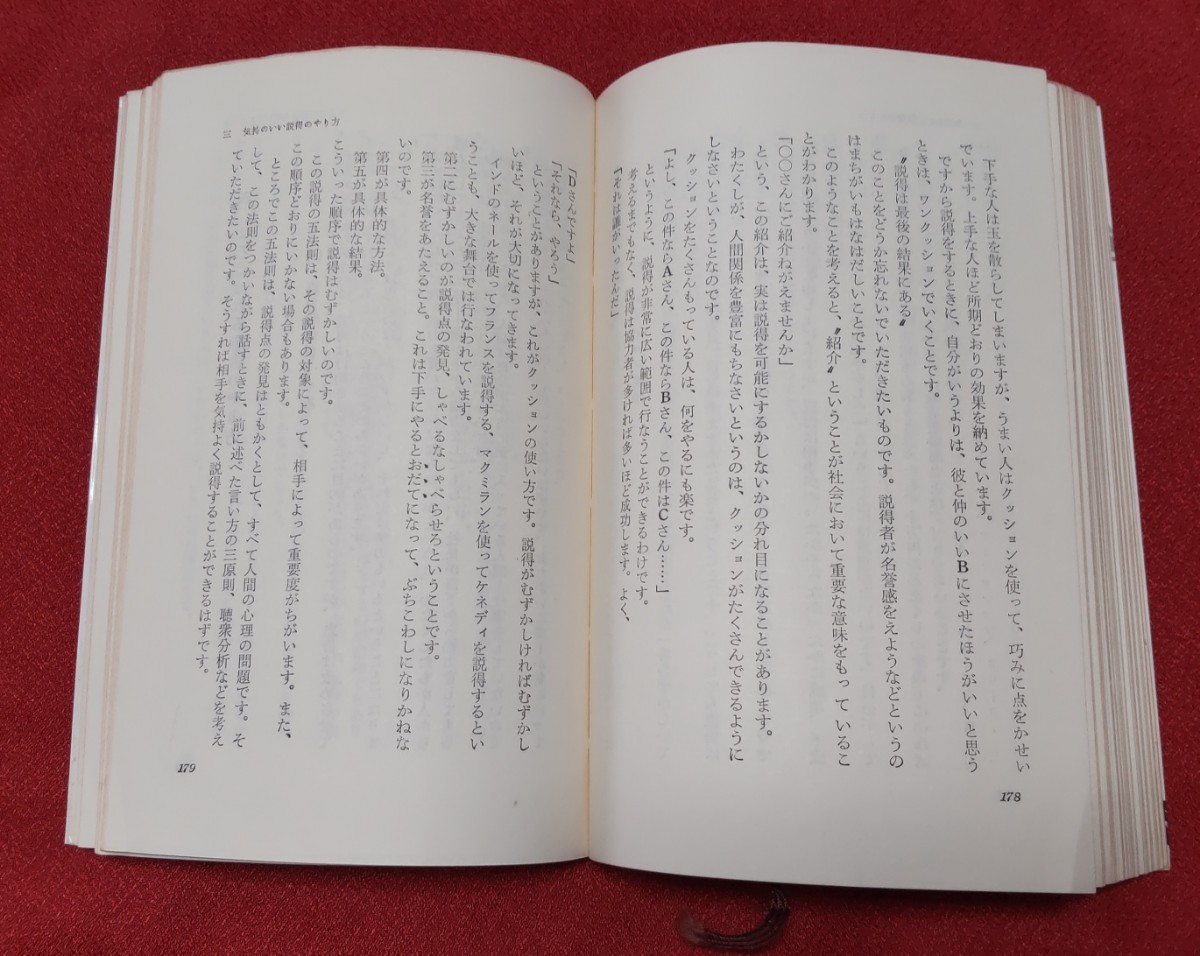 下手な人は玉を散らしてしまいますが、うまい人はクッションを使って、巧みに点をかせい
でいます。上手な人ほど所期どおりの効果を納めています。
ですから説得をするときに、自分がいうよりは、彼と仲のいいBにさせたほうがいいと思う
ときは、ワンクッションでいくことです。
〝説得は最後の結果にある〟
このことをどうか忘れないでいただきたいものです。説得者が名誉感をえようなどというの
はまちがいもはなはだしいことです。
このようなことを考えると、〝紹介〟ということが社会において重要な意味をもっているこ
とがわかります。
「〇〇さんにご紹介ねがえませんか」
という、この紹介は、実は説得を可能にするかしないかの分れ目になることがあります。
わたくしが、人間関係を豊富にもちなさいというのは、クッションがたくさんできるように
しなさいということなのです。
クッションをたくさんもっている人は、何をやるにも楽です。
「よし、この件ならAさん、この件ならBさん、この件はCさん……」
というように、説得が非常に広い範囲で行なうことができるわけです。
考えるまでもなく、説得は協力者が多ければ多いほど成功します。よく、
「それは誰がいったんだ」
178
三 気持のいい説得のやり方
「Dさんですよ」
「それなら、やろう」
ということがありますが、これがクッションの使い方です。説得がむずかしければむずかし
いほど、それが大切になってきます。
インドのネールを使ってフランスを説得する、マクミランを使ってケネディを説得するとい
うことも、大きな舞台では行なわれています。
第二にむずかしいのが説得点の発見、しゃべるなしゃべらせろということです。
第三が名誉をあたえること。これは下手にやるとおだてになって、ぶちこわしになりかねな
いのです。
第四が具体的な方法。
第五が具体的な結果。
こういった順序で説得はむずかしいのです。
この説得の五法則は、その説得の対象によって、相手によって重要度がちがいます。また、
この順序どおりにいかない場合もあります。
ところでこの五法則は、説得点の発見はともかくとして、すべて人間の心理の問題です。そ
して、この法則をつかいながら話すときに、前に述べた言い方の三原則、聴衆分析などを考え
ていただきたいのです。そうすれば相手を気持よく説得することができるはずです。
179